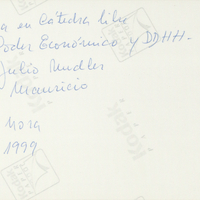 a en Cátedra libre
Poder Económico y DDHH.
Julio Nudler
Mauricio
Mora
1999